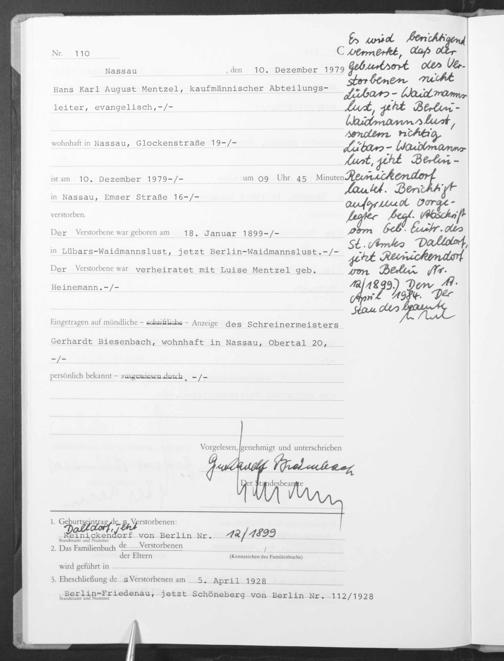 Nr. 110
C
Nassau, den 10. Dezember 1979
Hans Karl August Mentzel, kaufmännischer Abteilungs-
leiter, evangelisch,-/-
wohnhaft in Nassau, Glockenstraße 19-/-
ist am 10. Dezember 1979-/- um 09 Uhr 45 Minuten
in Nassau, Emser Straße 16-/-
verstorben.
Der Verstorbene war geboren am 18. Januar 1899-/-
in Lübars-Waidmannslust, jetzt Berlin-Waidmannslust.-/-
Der Verstorbene war verheiratet mit Luise Mentzel geb.
Heinemann.-/-
Eingetragen auf mündliche - schriftliche - Anzeige des Schreinermeisters
Gerhardt Biesenbach, wohnhaft in Nassau, Obertal 20,
-/-
persönlich bekannt - ausgewiesen durch, -/-
Vorgelesen, genehmigt und unterschrieben
Der Standesbeamte
1. Geburtseintrag des Verstorbenen:
Dalldorf, jetzt
Reinickendorf von Berlin Nr. 12/1899
Standesamt und Nummer
2. Das Familienbuch de Verstorbenen
der Eltern (Kennzeichen des Familienbuchs)
wird geführt in
3. Eheschließung des Verstorbenen am 5. April 1928
Berlin-Friedenau, jetzt Schöneberg von Berlin Nr. 112/1928
Standesamt und Nummer
Es wird berichtigend
vermerkt, daß der
Geburtsort des Ver-
storbenen nicht
Lübars-Waidmanns-
lust, jetzt Berlin-
Waidmannslust,
sondern richtig
Lübars-Waidmanns-
lust, jetzt Berlin-
Reinickendorf
lautet. Berichtigt
aufgrund vorge-
legter begl. Abschrift
vom Geb. Eintr. des
St. Amtes Dalldorf,
jetzt Reinickendorf
von Berlin Nr.
12/1899.) Den
April 1984. Der
Standesbeamte